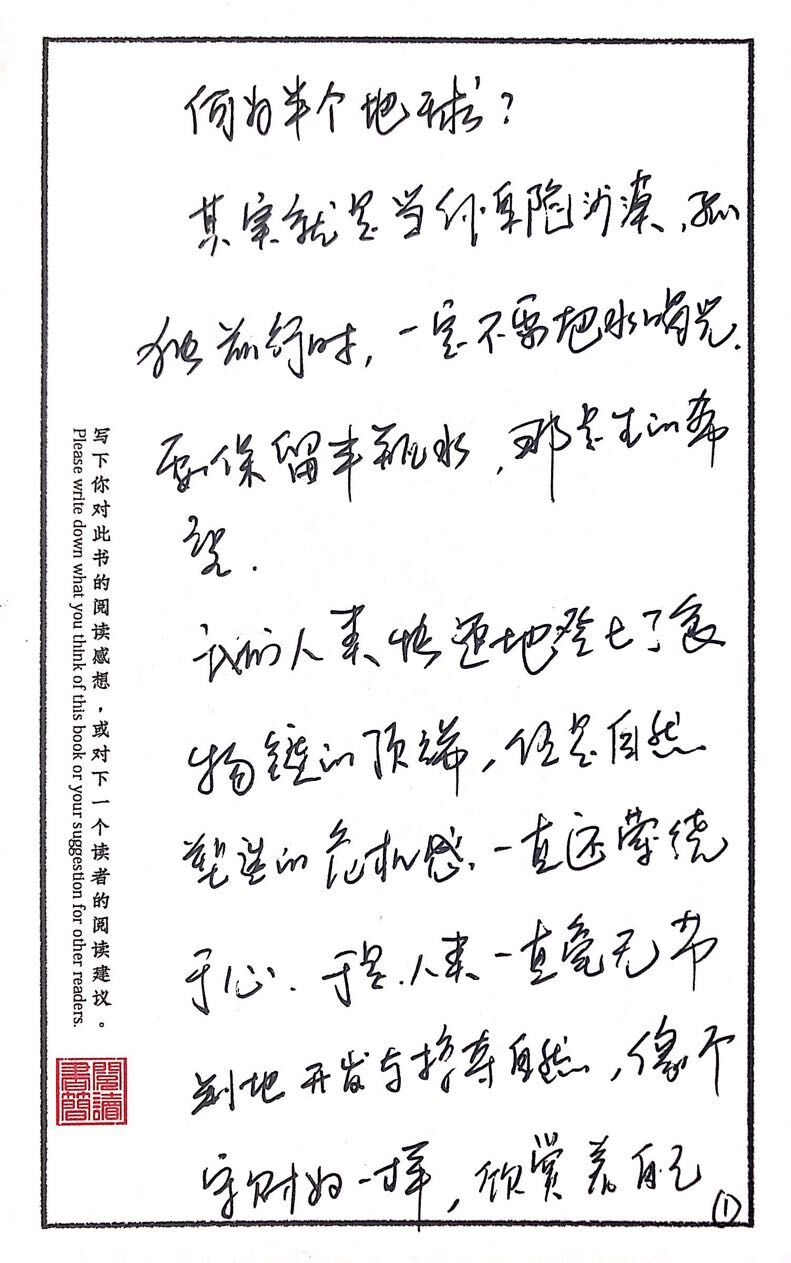 何为半个地球？
其实就是当你身陷沙漠，孤
独前行时，一定不要把水喝光.
要保留半瓶水，那是生的希
望.
我们人类快速地登上了食
物链的顶端，但是自然
塑造的危机感.一直还萦绕
于心.于是.人类一直毫无节
制地开发与掠夺自然，像个
守财奴一样，欣赏着自己
①
写下你对此书的阅读感想，或对下一个读者的阅读建议。
Please write down what you think of this book or your suggestion for other readers.
閱讀書簡